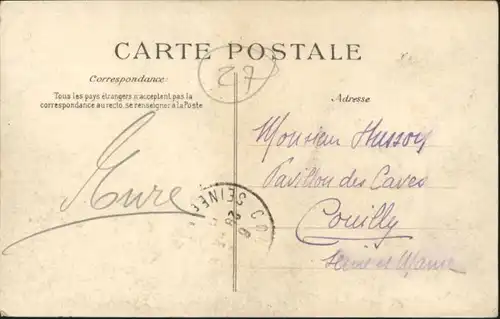 CARTE POSTALE
27
Correspondance:
Tous les pays étrangers n'acceptent pas la
correspondance au recto, se renseigner à la Poste
Adresse
Eure
Monsieur Husson
Pavillon des Caves
Couilly
Seine et Marne
SEINE
28
6